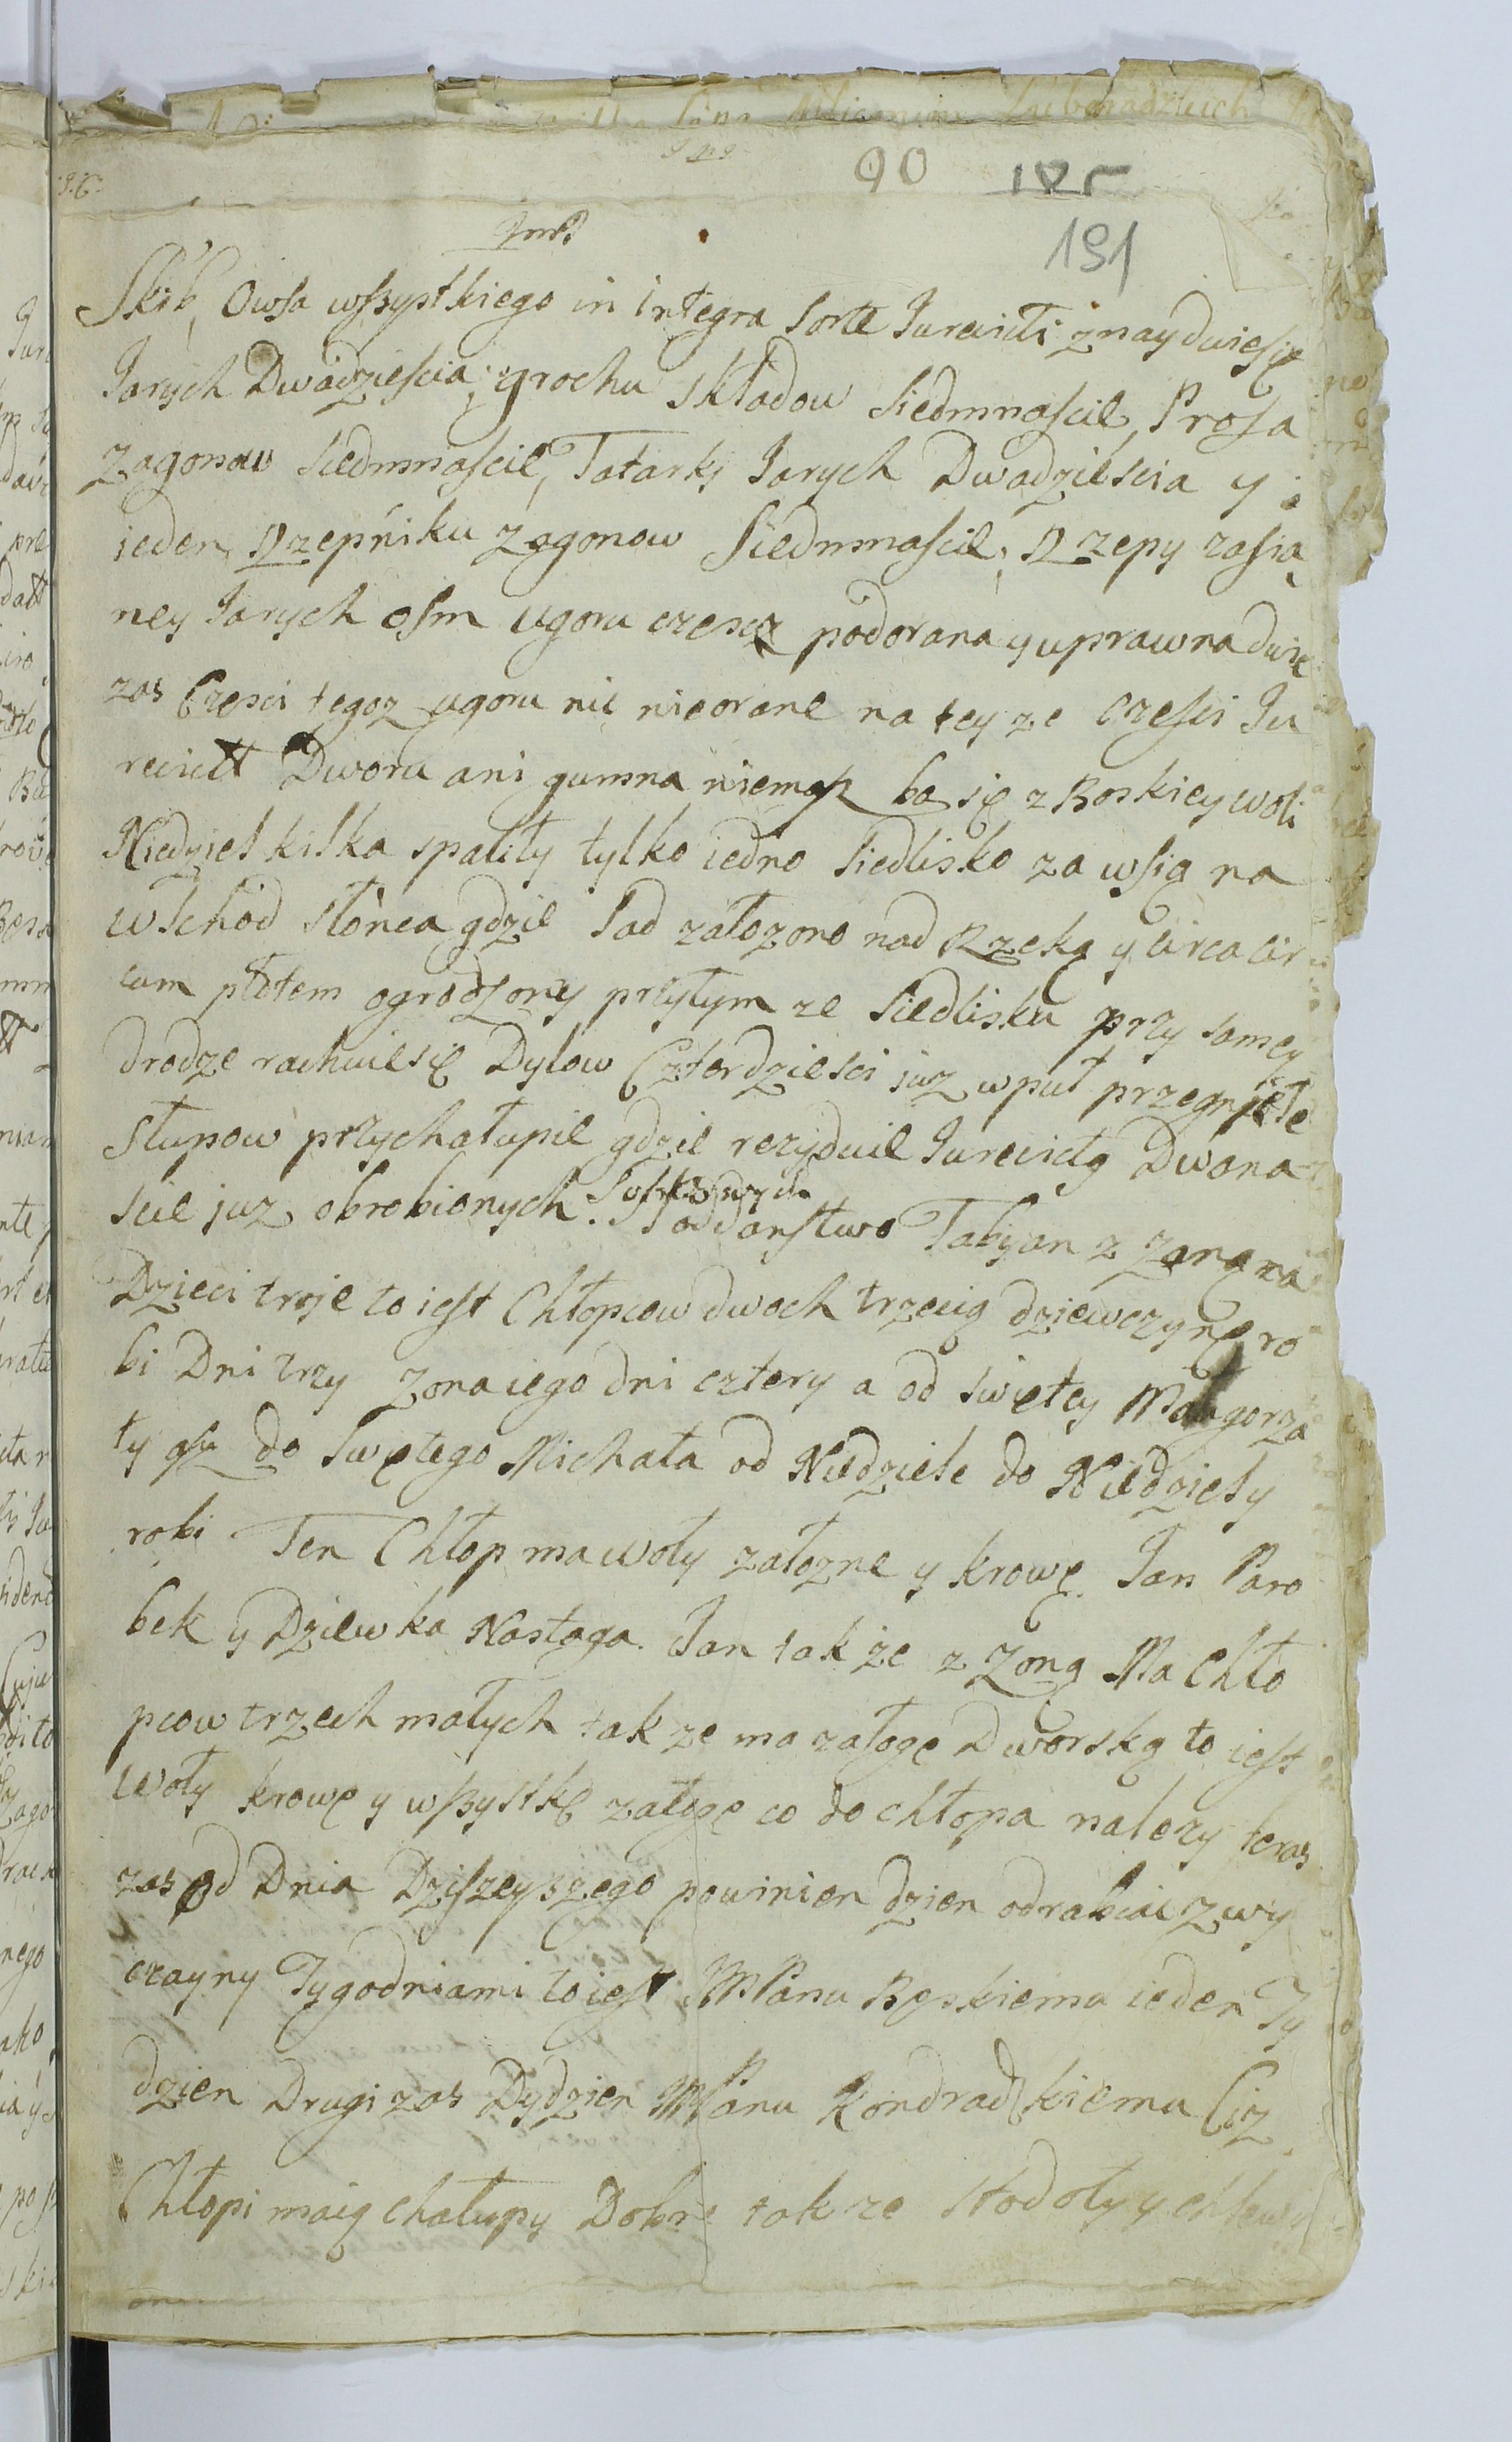 90
191
Skib, Owsa wszystkiego in integra sorte Jurewicti znayduiesię
Jarych Dwadziescia, grochu składow siedmnascie, Prosa
zagonow siedmnascie, Tatarki Jarych Dwadziescia y
ieden, Rzepniku zagonow Siedmnascie, Rzepy zasia
ney Jarych osm ugoru czescz podorana y uprawna dwie
zas Czesci tegoz ugoru nic nieorane na tey ze czesci Ju
rewict Dworu ani gumna niemasz bo się z Boskiey woli
Niedziel kilka spaliły tylko iedno siedlisko za wsią na
wschod słonca gdzie sad załozono nad Rzeką y circa cir
cum płotem ogrodzony przytym ze siedlisku przy samey
drodze rachuiesię Dylow Czterdziesci juz wpuł przegniełe
Słupow przychałupie gdzie rezyduie Jurewictą Dwana
scie juz obrobionych. Poddanstwo Fabyan z Zoną ma
Dzieci troje to iest Chłopcow dwoch trzecią dziewczynę ro
bi Dni trzy Zona iego dni cztery a od swiętey Małgorza
ty asz do swętego Michała od Niedziele do Niedziely
robi Ten Chłop ma woły załozne y krowę. Jan Paro
bek y Dziewka Nastaga. Jan tak że z Zoną Ma Chło
pcow trzech małych tak ze ma załogę Dworską to iest
woły krowę y wszystkę załogę co do chłopa nalezy teras
zas od Dnia Dziszeyszego powinien dzien odrabiac zwy
czayny Tygodniami to iest Mości Panu Bęskiemu ieden Ty
dzien Drugi zas Dydzien MPanu Kondradskiemu Ciz
Chłopi maią chałupy Dobre tak ze stodoły y chlewy